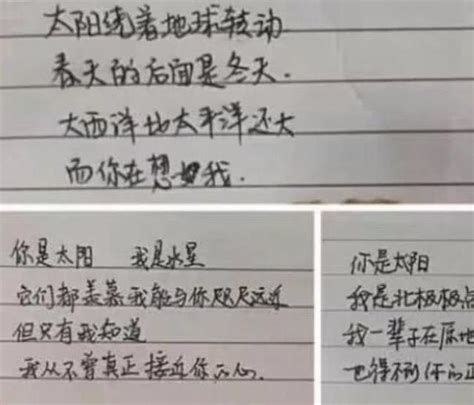 太阳绕着地球转动
春天的后面是冬天.
大西洋比太平洋还大
而你在想我.
你是太阳 我是水星
它们都羡慕我能与你咫尺远近
但只有我知道
我从不曾真正接近你的心.
你是太阳
我是北极极
我一辈子在原地
也得不到你的